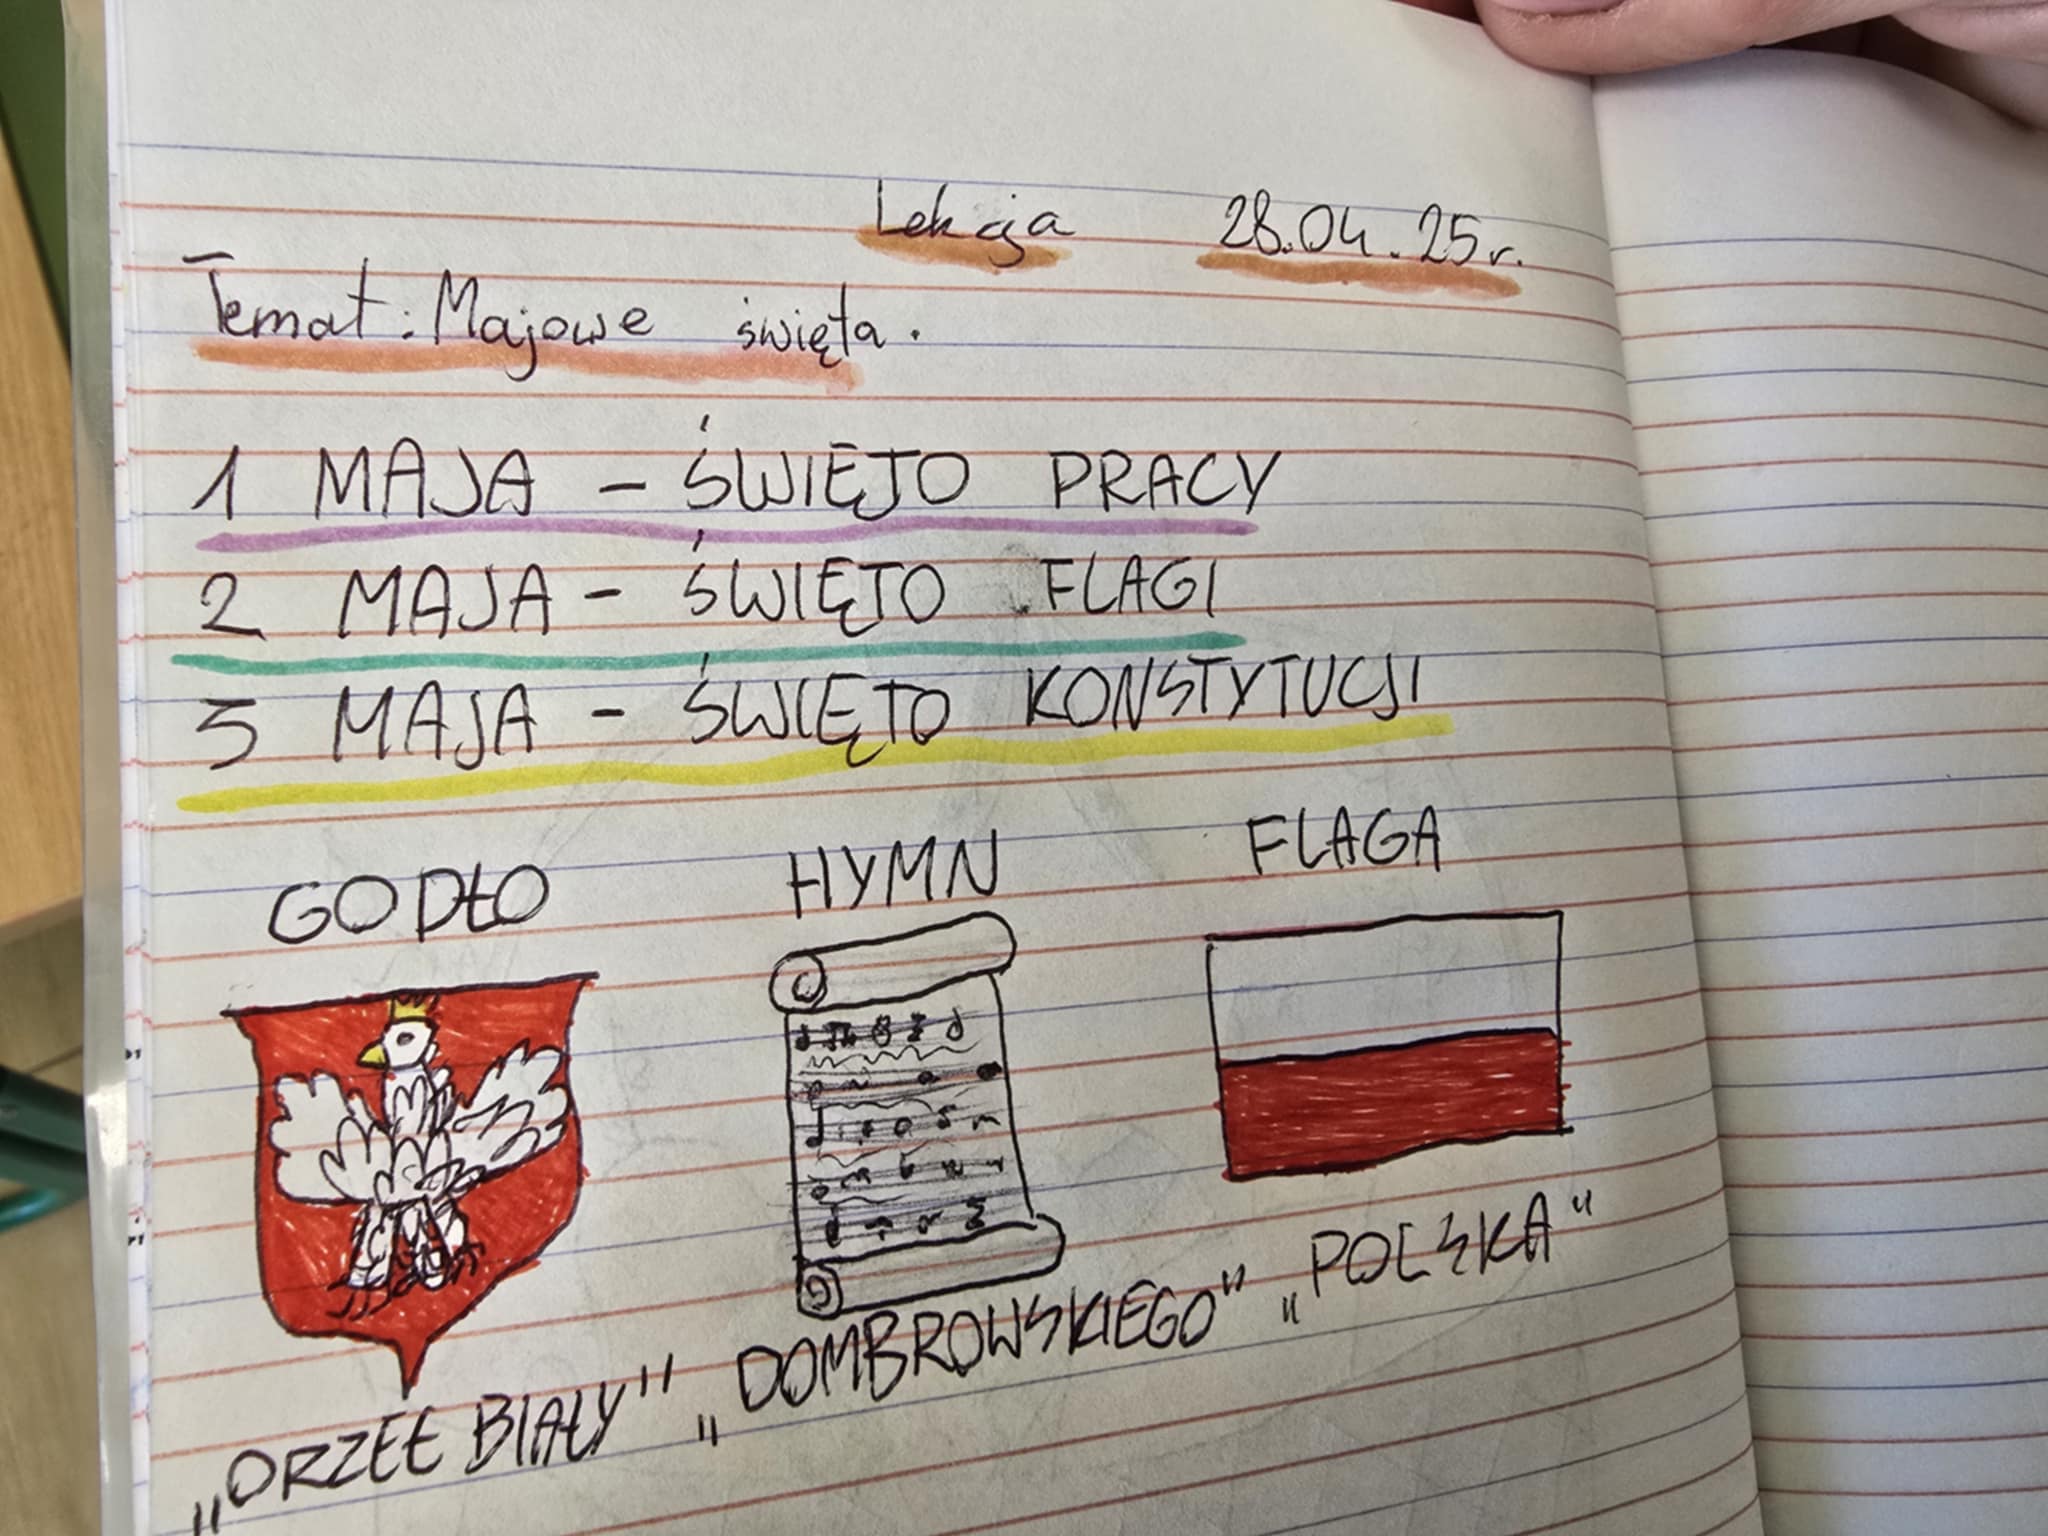 Lekcja 28.04.25r.
Temat: Majowe święta.
1 MAJA - ŚWIĘTO PRACY
2 MAJA - ŚWIĘTO FLAGI
3 MAJA - ŚWIĘTO KONSTYTUCJI
GODŁO HYMN FLAGA
„ORZEŁ BIAŁY" „DOMBROWSKIEGO" „POLSKA"